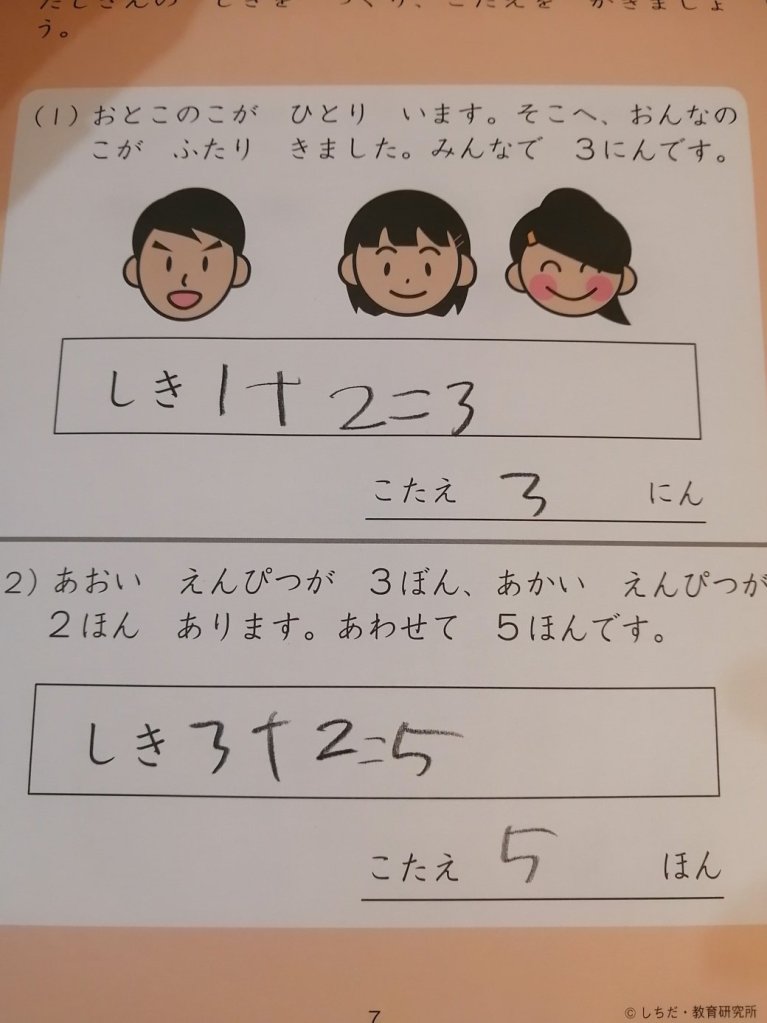 たしざんの しきを つくり、こたえを かきましょ
う。
(1) おとこのこが ひとり います。そこへ、おんなの
こが ふたり きました。みんなで 3にんです。
しき 1+2=3
こたえ 3 にん
2) あおい えんぴつが 3ぼん、あかい えんぴつが
2ほん あります。あわせて 5ほんです。
しき 3+2=5
こたえ 5 ほん
7
© しちだ・教育研究所